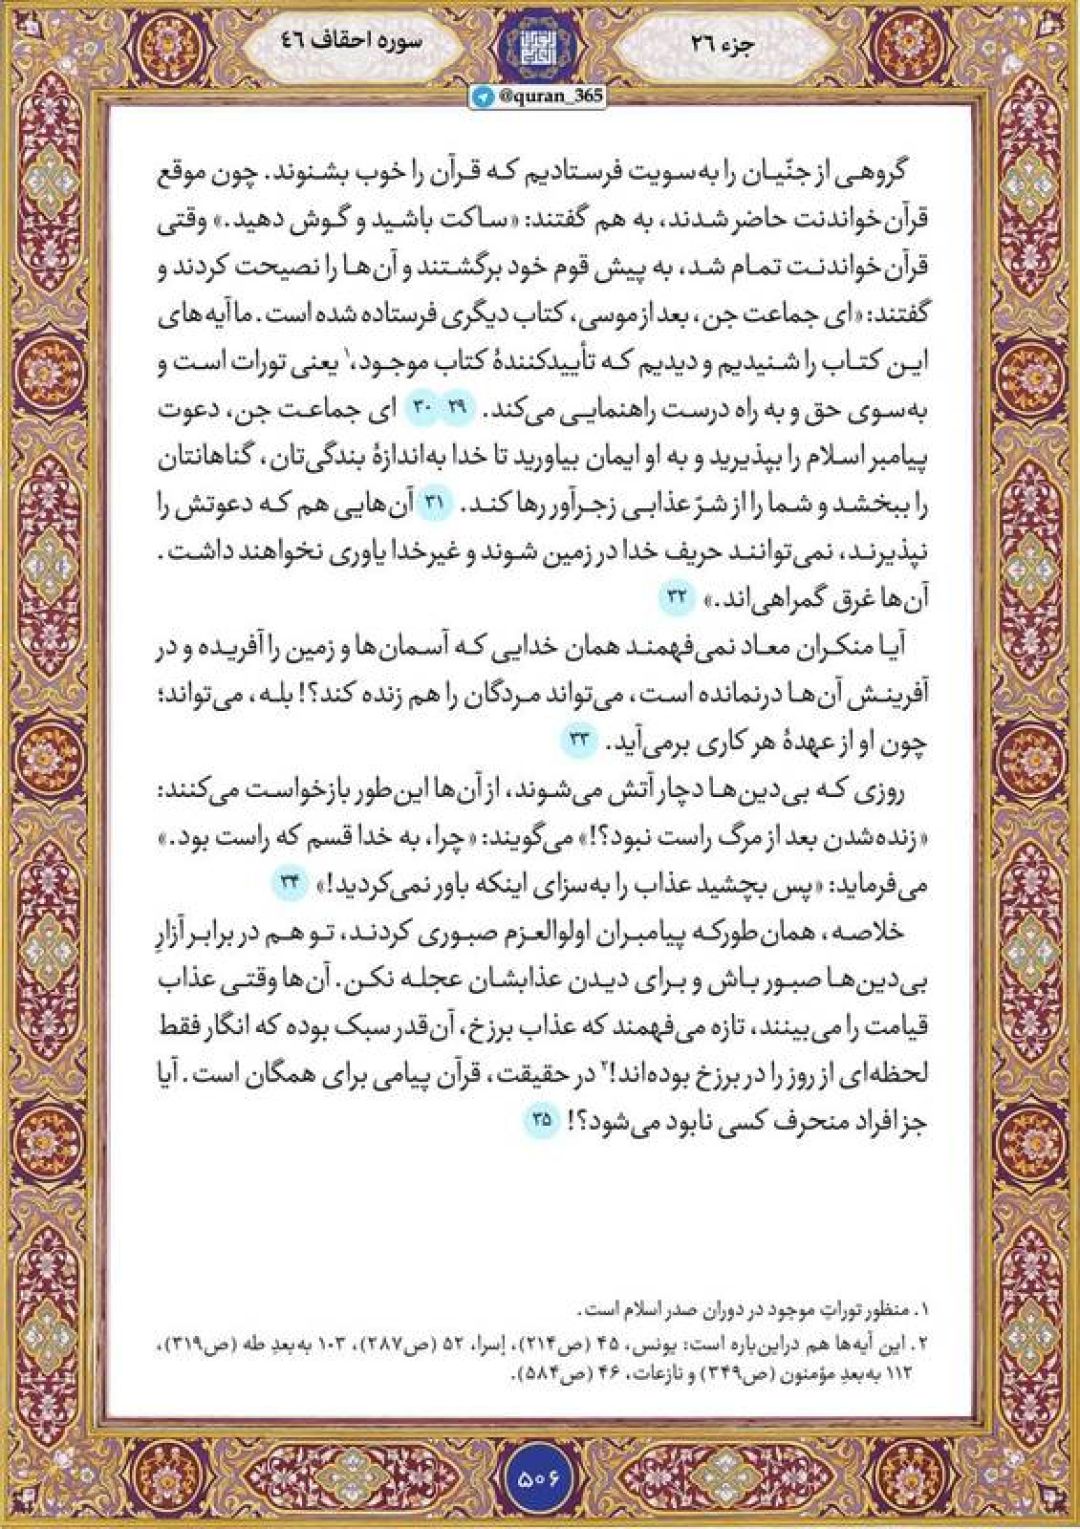 جزء ۲۶
سوره احقاف ٤٦
@quran_365
گروهی از جنّیان را به‌سویت فرستادیم که قرآن را خوب بشنوند. چون موقع
قرآن‌خواندنت حاضر شدند، به هم گفتند: «ساکت باشید و گوش دهید.» وقتی
قرآن‌خواندنت تمام شد، به پیش قوم خود برگشتند و آن‌ها را نصیحت کردند و
گفتند: «ای جماعت جن، بعد از موسی، کتاب دیگری فرستاده شده است. ما آیه‌های
این کتاب را شنیدیم و دیدیم که تأییدکنندهٔ کتاب موجود،۱ یعنی تورات است و
به‌سوی حق و به راه درست راهنمایی می‌کند. ۲۹ ۳۰ ای جماعت جن، دعوت
پیامبر اسلام را بپذیرید و به او ایمان بیاورید تا خدا به‌اندازهٔ بندگی‌تان، گناهانتان
را ببخشد و شما را از شرّ عذابی زجرآور رها کند. ۳۱ آن‌هایی هم که دعوتش را
نپذیرند، نمی‌توانند حریف خدا در زمین شوند و غیرخدا یاوری نخواهند داشت.
آن‌ها غرق گمراهی‌اند.» ۳۲
آیا منکران معاد نمی‌فهمند همان خدایی که آسمان‌ها و زمین را آفریده و در
آفرینش آن‌ها درنمانده است، می‌تواند مردگان را هم زنده کند؟! بله، می‌تواند؛
چون او از عهدهٔ هر کاری برمی‌آید. ۳۳
روزی که بی‌دین‌ها دچار آتش می‌شوند، از آن‌ها این‌طور بازخواست می‌کنند:
«زنده‌شدن بعد از مرگ راست نبود؟!» می‌گویند: «چرا، به خدا قسم که راست بود.»
می‌فرماید: «پس بچشید عذاب را به‌سزای اینکه باور نمی‌کردید!» ۳۴
خلاصه، همان‌طورکه پیامبران اولوالعزم صبوری کردند، تو هم در برابر آزارِ
بی‌دین‌ها صبور باش و برای دیدن عذابشان عجله نکن. آن‌ها وقتی عذاب
قیامت را می‌بینند، تازه می‌فهمند که عذاب برزخ، آن‌قدر سبک بوده که انگار فقط
لحظه‌ای از روز را در برزخ بوده‌اند!۲ در حقیقت، قرآن پیامی برای همگان است. آیا
جز افراد منحرف کسی نابود می‌شود؟! ۳۵
۱. منظور توراتِ موجود در دوران صدر اسلام است.
۲. این آیه‌ها هم دراین‌باره است: یونس، ۴۵ (ص۲۱۴)، إسرا، ۵۲ (ص۲۸۷)، ۱۰۳ به‌بعدِ طه (ص۳۱۹)،
۱۱۲ به‌بعدِ مؤمنون (ص۳۴۹) و نازعات، ۴۶ (ص۵۸۴).
۵۰۶